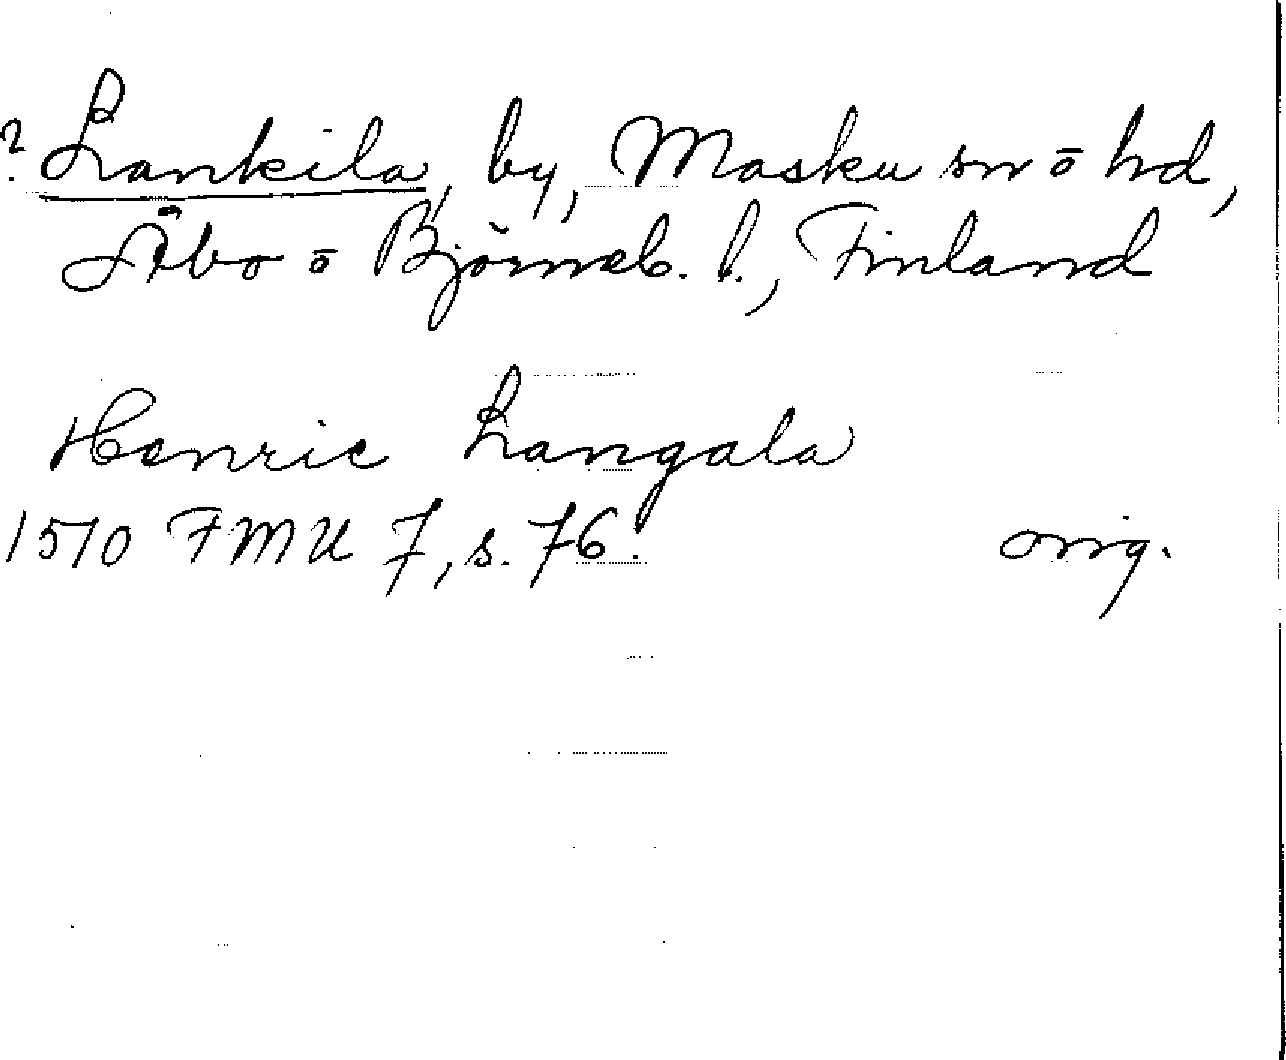 ? Lankila, by, Masku sn ō hd,
Åbo ō Björneb. l., Finland
Henric Langala
1510 FMU 7, s. 76. orig.